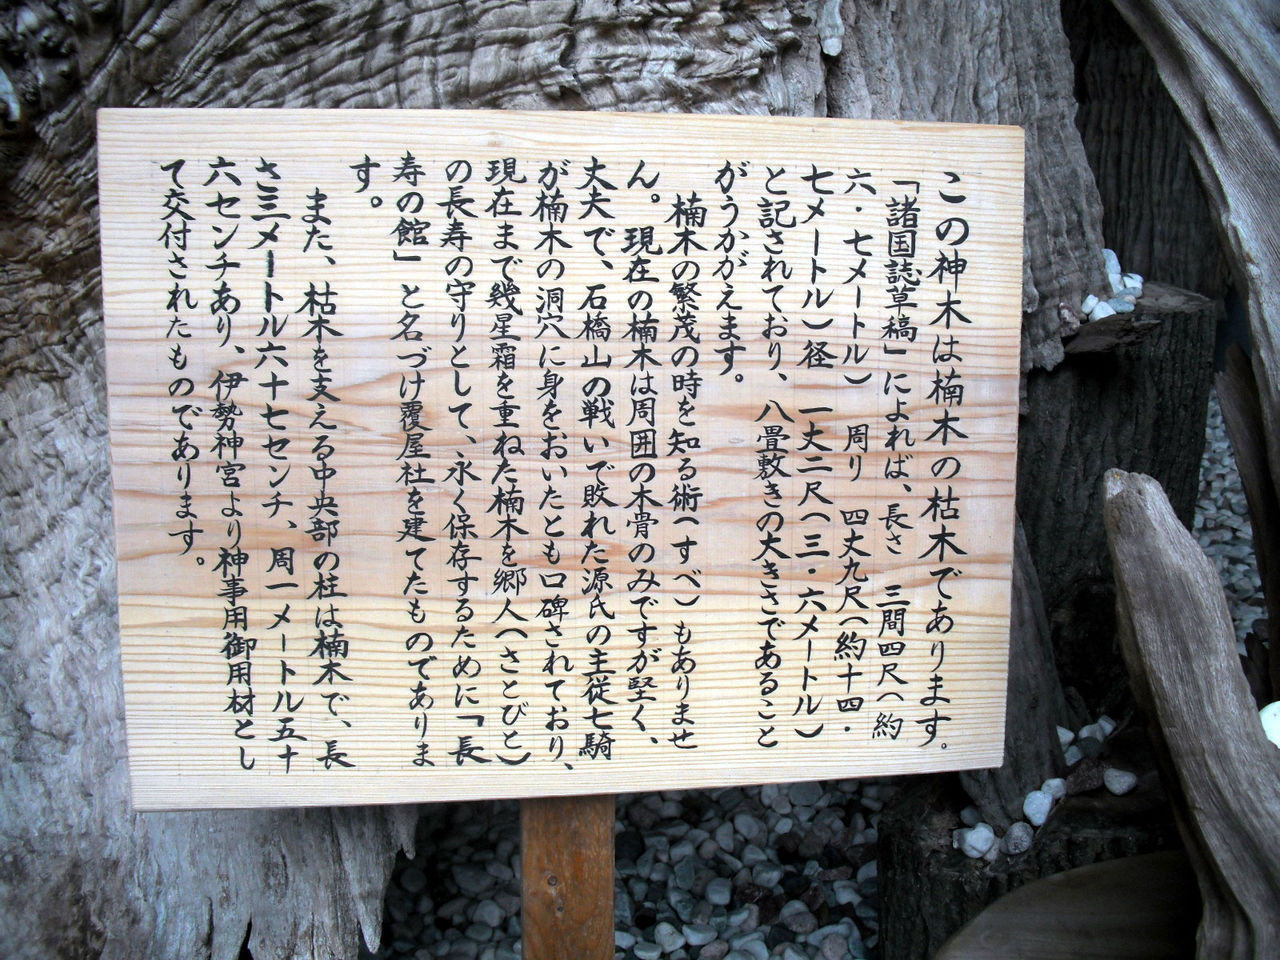 この神木は楠木の枯木であります。
「諸国誌草稿」によれば、長さ 三間四尺(約
六・七メートル) 周り 四丈九尺(約十四・
七メートル)径 一丈二尺(三・六メートル)
と記されており、八畳敷きの大きさであること
がうかがえます。
楠木の繁茂の時を知る術(すべ)もありませ
ん。現在の楠木は周囲の木骨のみですが堅く、
丈夫で、石橋山の戦いで敗れた源氏の主従七騎
が楠木の洞穴に身をおいたとも口碑されており、
現在まで幾星霜を重ねた楠木を郷人(さとびと)
の長寿の守りとして、永く保存するために「長
寿の館」と名づけ覆屋社を建てたものでありま
す。
また、枯木を支える中央部の柱は楠木で、長
さ三メートル六十七センチ、周一メートル五十
六センチあり、伊勢神宮より神事用御用材とし
て交付されたものであります。